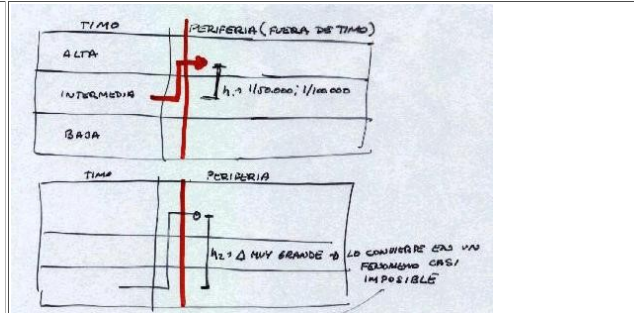 TIMO PERIFERIA (FUERA DE TIMO)
ALTA
INTERMEDIA h₁ 1/50.000; 1/100.000
BAJA
TIMO PERIFERIA
h₂ = Δ MUY GRANDE → LO CONVIERTE EN UN
FENOMENO CASI
IMPOSIBLE